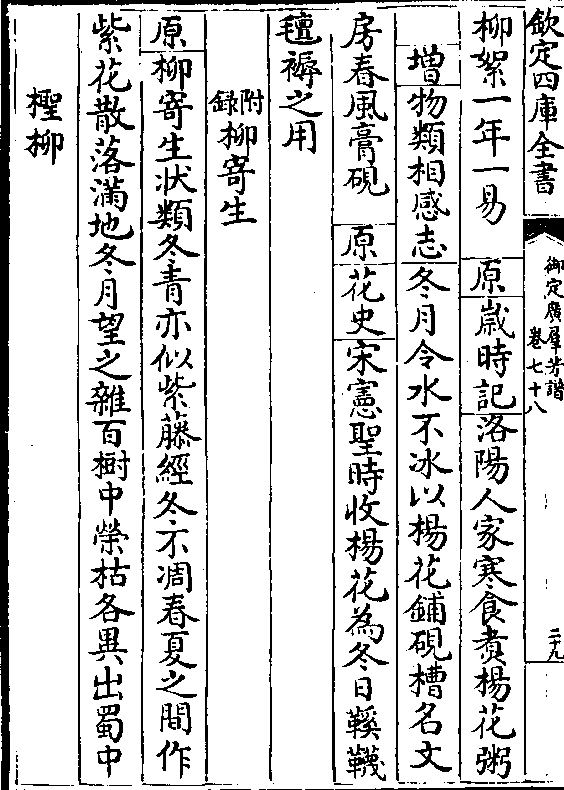 欽定四庫全書
御定廣羣芳譜
卷七十八
二十九
柳絮一年一易 原歲時記洛陽人家寒食煑楊花粥
增物類相感志冬月令水不冰以楊花鋪硯槽名文
房春風膏硯 原花史宋憲聖時收楊花為冬日鞵韈
氊褥之用
附錄柳寄生
原柳寄生狀類冬青亦似紫藤經冬不凋春夏之間作
紫花散落滿地冬月望之雜百樹中榮枯各異出蜀中
檉柳